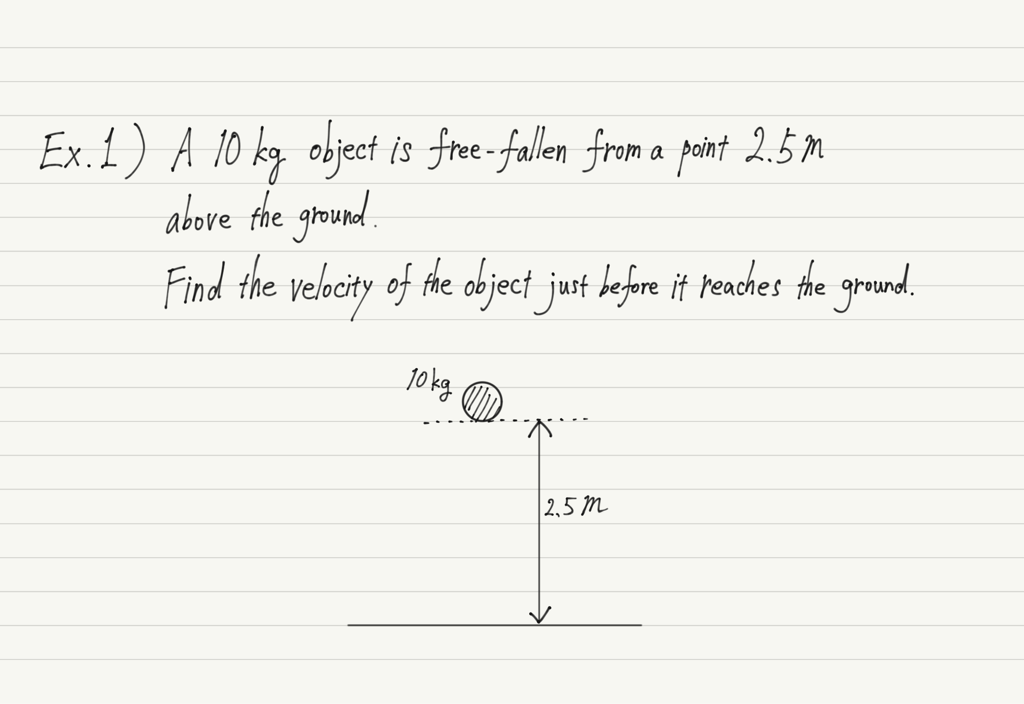 Ex.1) A 10 kg object is free-fallen from a point 2.5 m
above the ground.
Find the velocity of the object just before it reaches the ground.
10 kg
2.5 m